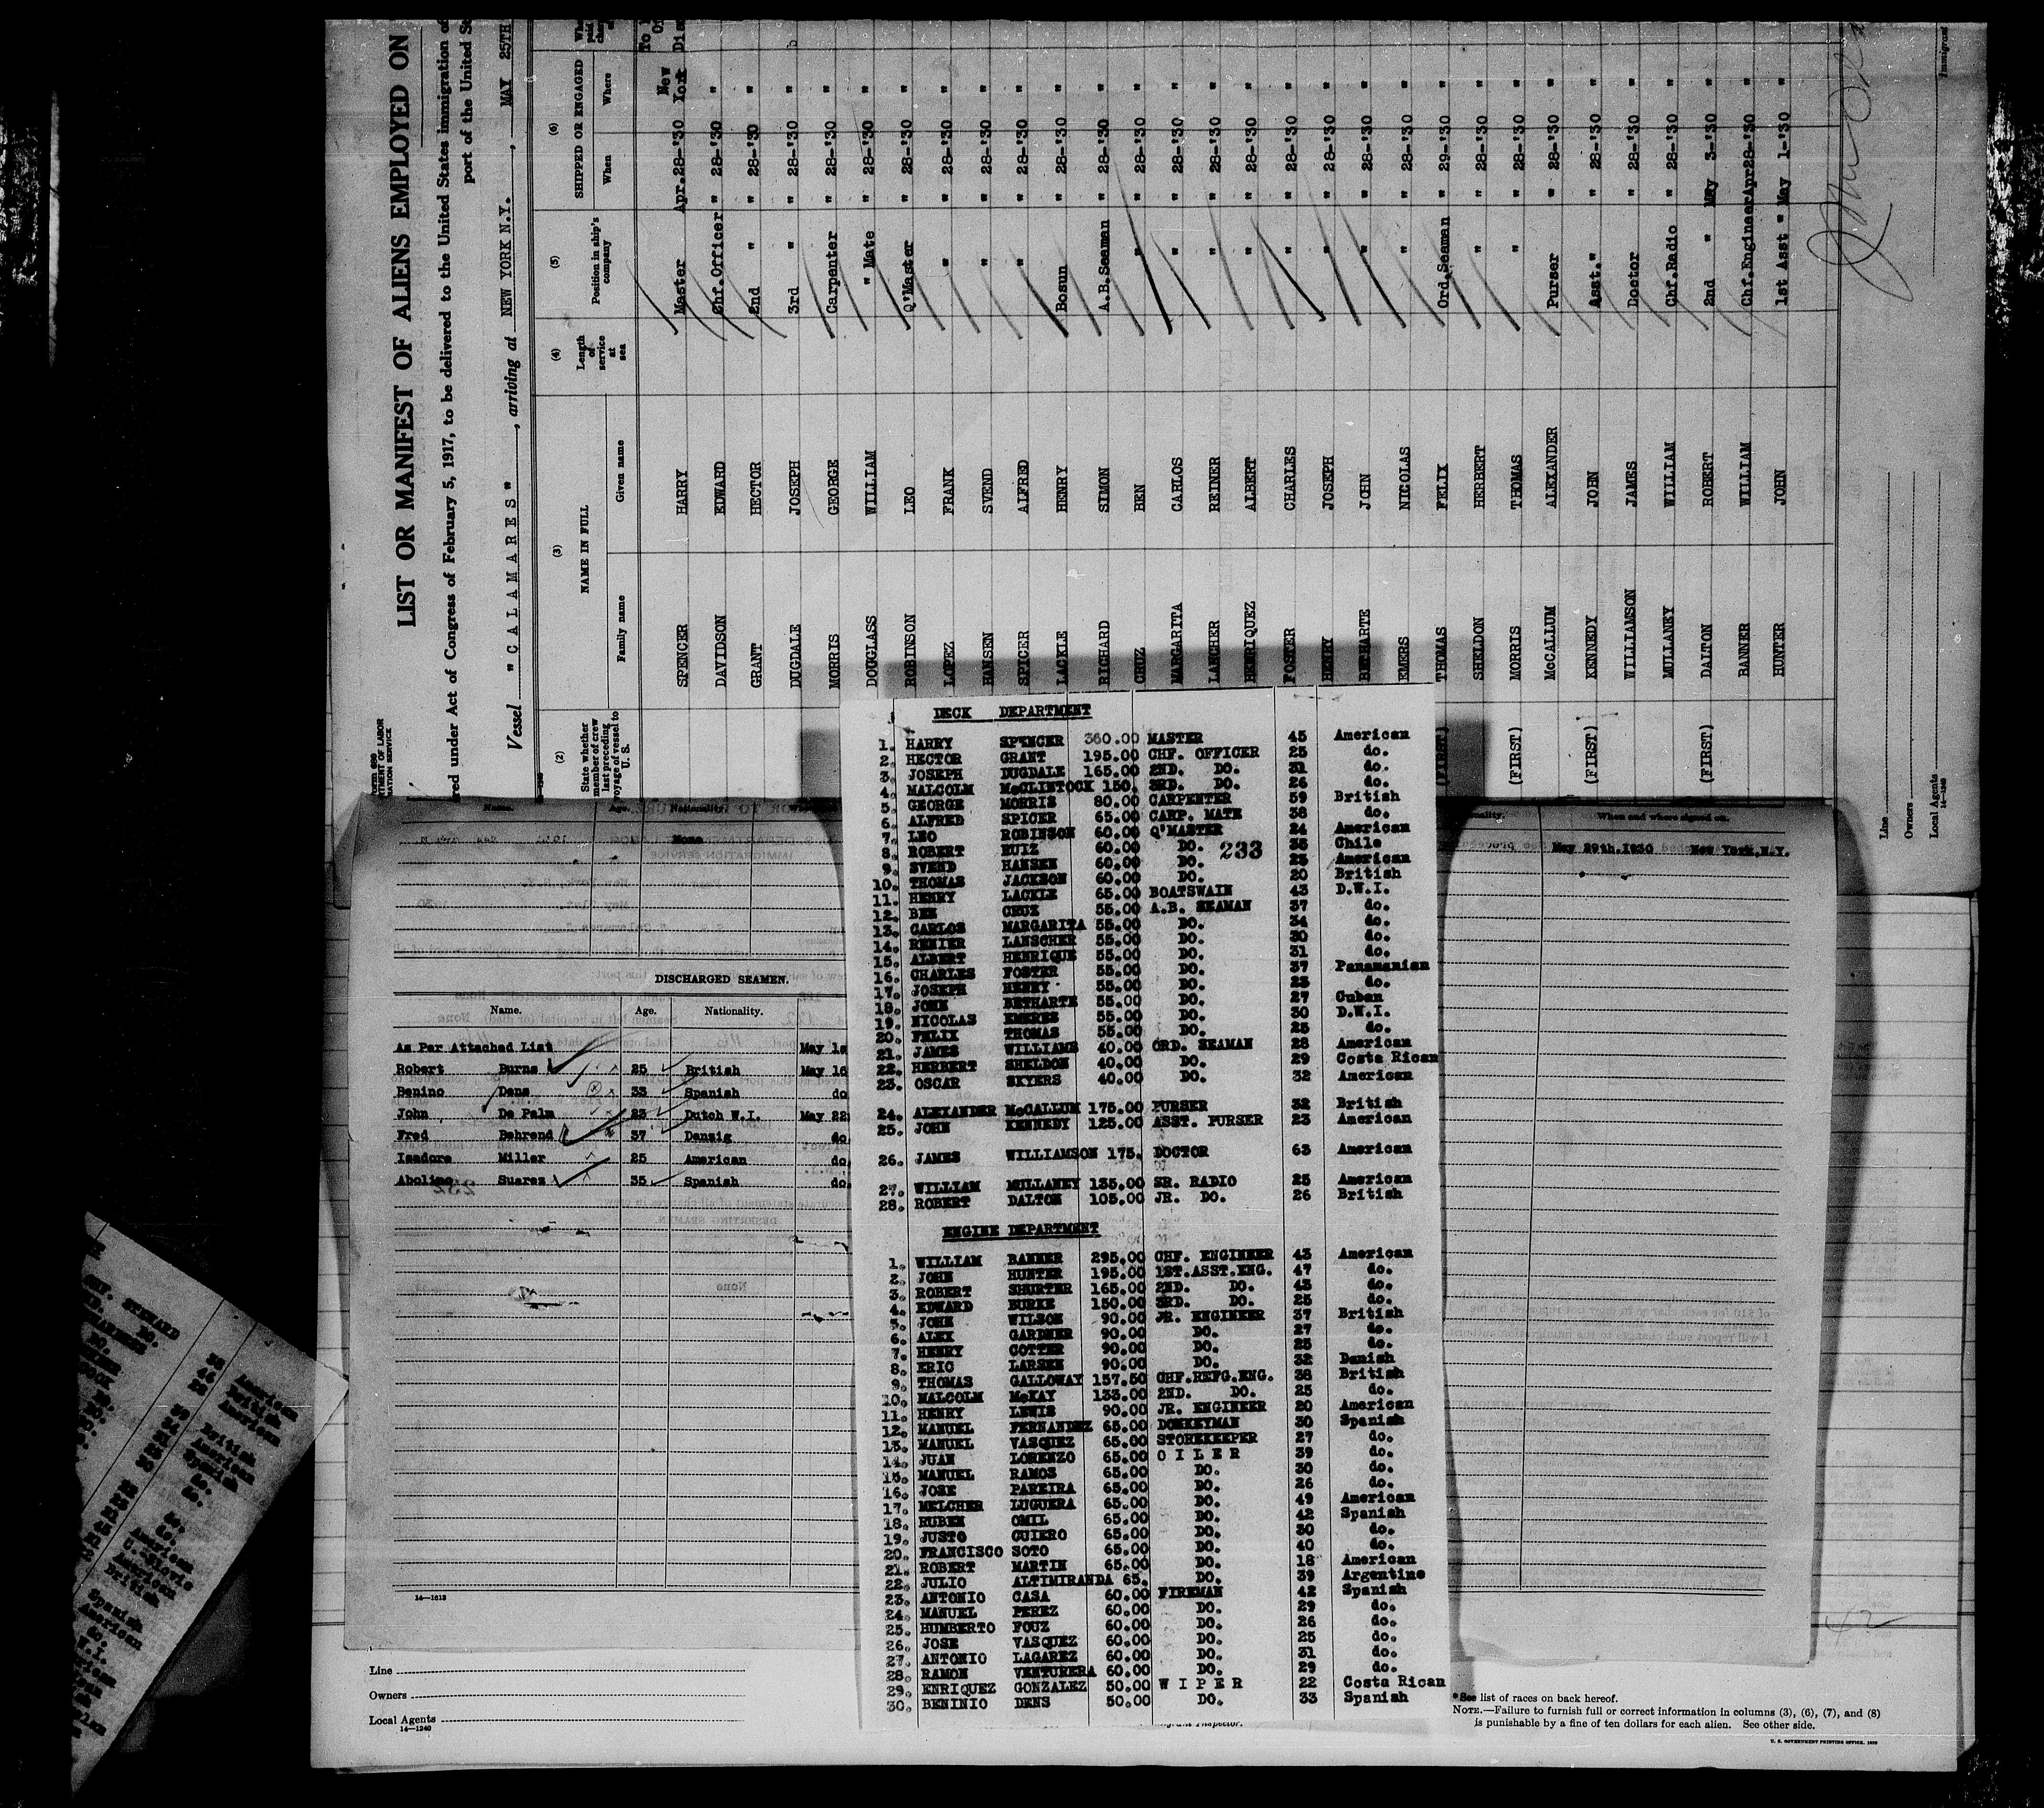 LIST OR MANIFEST OF ALIENS EMPLOYED ON
red under Act of Congress of February 5, 1917, to be delivered to the United States immigration of
port of the United S
Vessel "CALAMARES", arriving at NEW YORK N.Y., MAY 25TH
(2) (3) (4) (5) (6)
State whether member of crew last preceding voyage of vessel to U. S.
NAME IN FULL
Family name Given name
Length of service at sea
Position in ship's company
SHIPPED OR ENGAGED
When Where
SPENCER HARRY Master Apr.28-'30 New York
DAVIDSON EDWARD Chf.Officer " 28-'30 "
GRANT HECTOR 2nd " " 28-'30 "
DUGDALE JOSEPH 3rd " " 28-'30 "
MORRIS GEORGE Carpenter " 28-'30 "
DOUGLASS WILLIAM " Mate " 28-'30 "
ROBINSON LEO Q'Master " 28-'30 "
LOPEZ FRANK " " 28-'30 "
HANSEN SVEND " " 28-'30 "
SPICER ALFRED " " 28-'30 "
LACKLE HENRY Bosun " 28-'30 "
RICHARD SIMON A.B.Seaman " 28-'30 "
CRUZ BEN " " 28-'30 "
MARGARITA CARLOS " " 28-'30 "
LANCHER REINER " " 28-'30 "
HENRIQUEZ ALBERT " " 28-'30 "
FOSTER CHARLES " " 28-'30 "
HENRY JOSEPH " " 28-'30 "
BETHARTE JOHN " " 28-'30 "
EMERS NICOLAS " " 28-'30 "
(FIRST) THOMAS FELIX Ord.Seaman " 29-'30 "
SHELDON HERBERT " " 28-'30 "
(FIRST) MORRIS THOMAS " " 28-'30 "
McCALLUM ALEXANDER Purser " 28-'30 "
(FIRST) KENNEDY JOHN Asst." " 28-'30 "
WILLIAMSON JAMES Doctor " 28-'30 "
MULLANEY WILLIAM Chf.Radio " 28-'30 "
(FIRST) DALTON ROBERT 2nd " May 3-'30 "
BANNER WILLIAM Chf.Engineer Apr28-'30 "
HUNTER JOHN 1st Asst " May 1-'30 "
Line
Owners
Local Agents
14—1240
Immigrant
DECK DEPARTMENT
1. HARRY SPENCER 360.00 MASTER 45 American
2. HECTOR GRANT 195.00 CHF. OFFICER 25 do.
3. JOSEPH DUGDALE 165.00 2ND. DO. 31 do.
4. MALCOLM McCLINTOCK 150. 3RD. DO. 26 do.
5. GEORGE MORRIS 80.00 CARPENTER 59 British
6. ALFRED SPICER 65.00 CARP. MATE 38 do.
7. LEO ROBINSON 60.00 Q'MASTER 24 American
8. ROBERT RUIZ 60.00 DO. 35 Chile
233
9. SVEND HANSEN 60.00 DO. 23 American
10. THOMAS JACKSON 60.00 DO. 20 British
11. HENRY LACKLE 65.00 BOATSWAIN 43 D.W.I.
12. BEN CRUZ 55.00 A.B. SEAMAN 37 do.
13. CARLOS MARGARITA 55.00 DO. 34 do.
14. RENIER LANSCHER 55.00 DO. 30 do.
15. ALBERT HENRIQUE 55.00 DO. 31 do.
16. CHARLES FOSTER 55.00 DO. 37 Panamanian
17. JOSEPH HENRY 55.00 DO. 23 do.
18. JOHN BETHARTE 55.00 DO. 27 Cuban
19. NICOLAS EMERES 55.00 DO. 30 D.W.I.
20. FELIX THOMAS 55.00 DO. 25 do.
21. JAMES WILLIAMS 40.00 ORD. SEAMAN 28 American
22. HERBERT SHELDON 40.00 DO. 29 Costa Rican
23. OSCAR SKYERS 40.00 DO. 32 American
24. ALEXANDER McCALLUM 175.00 PURSER 32 British
25. JOHN KENNEDY 125.00 ASST. PURSER 23 American
26. JAMES WILLIAMSON 175. DOCTOR 63 American
27. WILLIAM MULLANEY 135.00 SR. RADIO 25 American
28. ROBERT DALTON 105.00 JR. DO. 26 British
ENGINE DEPARTMENT
1. WILLIAM BANNER 295.00 CHF. ENGINEER 43 American
2. JOHN HUNTER 195.00 1ST.ASST.ENG. 47 do.
3. ROBERT SHURTER 165.00 2ND. DO. 43 do.
4. EDWARD BURKE 150.00 3RD. DO. 25 do.
5. JOHN WILSON 90.00 JR. ENGINEER 37 British
6. ALEX GARDNER 90.00 DO. 27 do.
7. HENRY COTTER 90.00 DO. 25 do.
8. ERIC LARSEN 90.00 DO. 32 Danish
9. THOMAS GALLOWAY 157.50 CHF.REFG.ENG. 38 British
10. MALCOLM McKAY 133.00 2ND. DO. 25 do.
11. HENRY LEWIS 90.00 JR. ENGINEER 20 American
12. MANUEL FERNANDEZ 65.00 DONKEYMAN 30 Spanish
13. MANUEL VASQUEZ 65.00 STOREKEEPER 27 do.
14. JUAN LORENZO 65.00 O I L E R 39 do.
15. MANUEL RAMOS 65.00 DO. 30 do.
16. JOSE PAREIRA 65.00 DO. 26 do.
17. MELCHER LUGUERA 65.00 DO. 49 American
18. RUBEN OMIL 65.00 DO. 42 Spanish
19. JUSTO GUIERO 65.00 DO. 30 do.
20. FRANCISCO SOTO 65.00 DO. 40 do.
21. ROBERT MARTIN 65.00 DO. 18 American
22. JULIO ALTIMIRANDA 65. DO. 39 Argentine
23. ANTONIO CASA 60.00 FIREMAN 42 Spanish
24. MANUEL PEREZ 60.00 DO. 29 do.
25. HUMBERTO FOUZ 60.00 DO. 26 do.
26. JOSE VASQUEZ 60.00 DO. 25 do.
27. ANTONIO LAGAREZ 60.00 DO. 31 do.
28. RAMON VENTURERA 60.00 DO. 29 do.
29. ENRIQUEZ GONZALEZ 50.00 W I P E R 22 Costa Rican
30. BENINIO DENS 50.00 DO. 33 Spanish
Name. Age. Nationality.
None
When and where signed on.
May 29th.1930 New York,N.Y.
DISCHARGED SEAMEN.
Name. Age. Nationality.
As Per Attached List May 1s
Robert Burns 25 British May 16
Benino Dens 33 Spanish do
John De Palm 23 Dutch W.I. May 22
Fred Behrend 37 Danzig do
Isadore Miller 25 American do
Abolino Suarez 35 Spanish do
14—1613
Line
Owners
Local Agents
14—1240
*See list of races on back hereof.
NOTE.—Failure to furnish full or correct information in columns (3), (6), (7), and (8)
is punishable by a fine of ten dollars for each alien. See other side.
U. S. GOVERNMENT PRINTING OFFICE, 1929